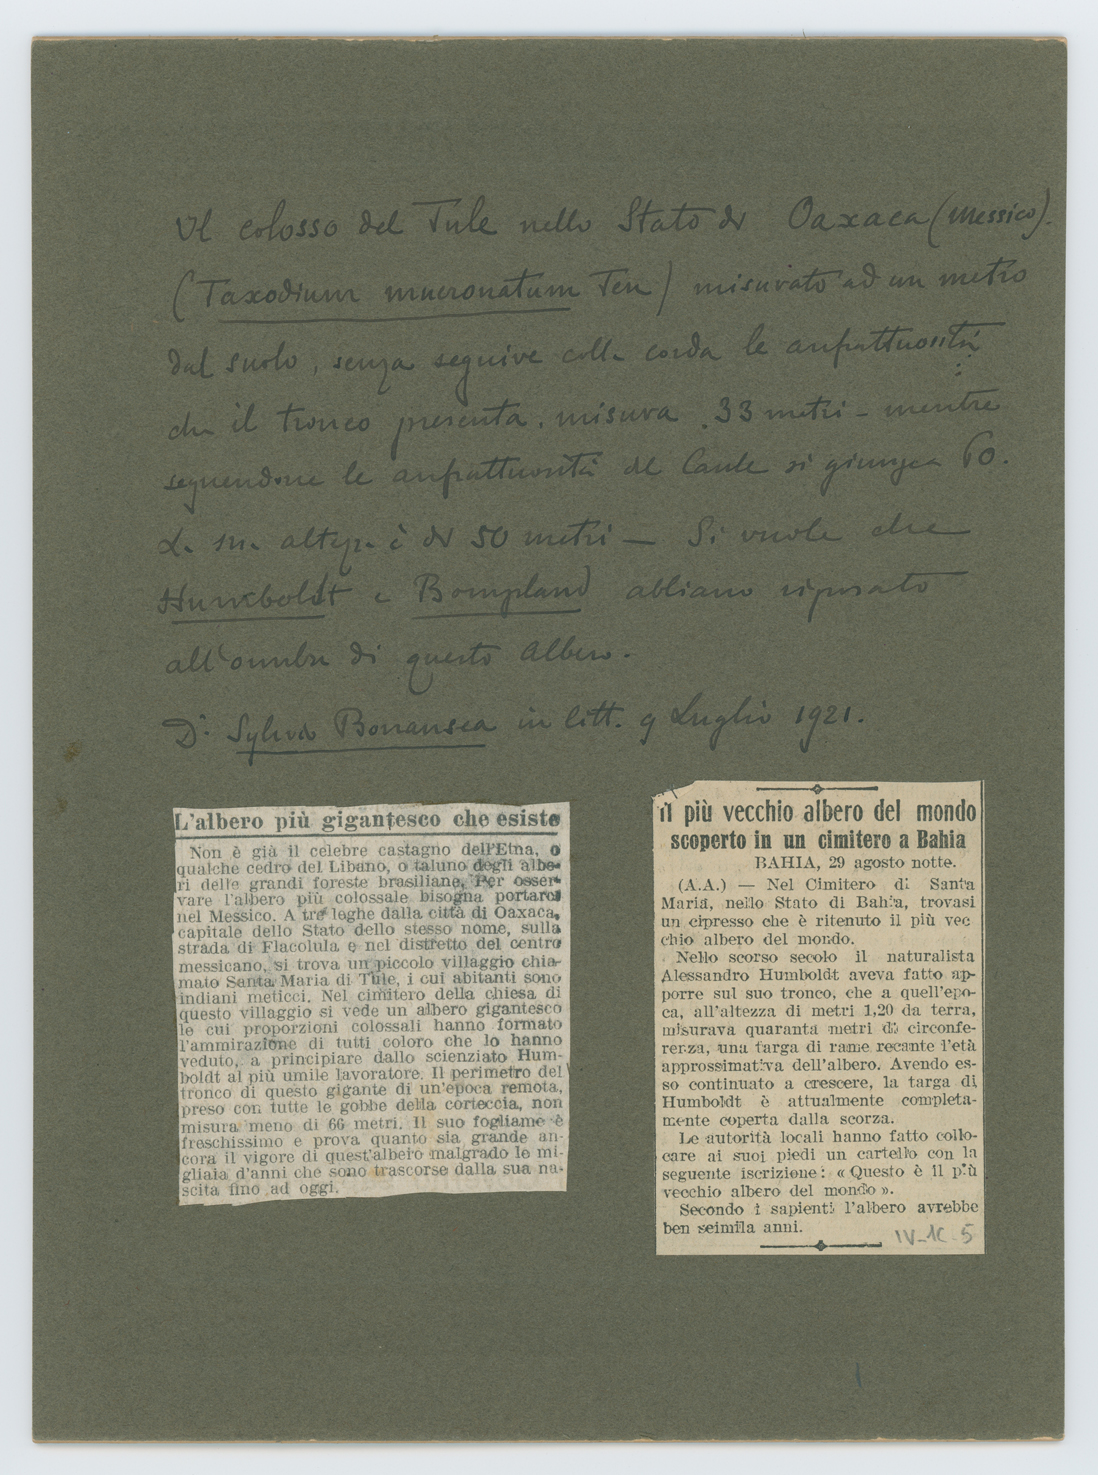 Il colosso del Tule nello Stato di Oaxaca (Messico).
(Taxodium mucronatum Ten) misurato ad un metro
dal suolo, senza seguire colla corda le anfrattuosità
che il tronco presenta, misura 33 metri – mentre
seguendone le anfrattuosità del Caule si giunge a 60.
La sua altezza è di 50 metri — Si vuole che
Humboldt e Bompland abbiano riposato
all'ombra di questo albero.
Dr. Sylvio Bonansea in litt. 9 Luglio 1921.
L'albero più gigantesco che esiste
Non è già il celebre castagno dell'Etna, o
qualche cedro del Libano, o taluno degli albe-
ri delle grandi foreste brasiliane. Per osser-
vare l'albero più colossale bisogna portarci
nel Messico. A tre leghe dalla città di Oaxaca,
capitale dello Stato dello stesso nome, sulla
strada di Flacolula e nel distretto del centro
messicano, si trova un piccolo villaggio chia-
mato Santa Maria di Tule, i cui abitanti sono
indiani meticci. Nel cimitero della chiesa di
questo villaggio si vede un albero gigantesco
le cui proporzioni colossali hanno formato
l'ammirazione di tutti coloro che lo hanno
veduto, a principiare dallo scienziato Hum-
boldt al più umile lavoratore. Il perimetro del
tronco di questo gigante di un'epoca remota,
preso con tutte le gobbe della corteccia, non
misura meno di 66 metri. Il suo fogliame è
freschissimo e prova quanto sia grande an-
cora il vigore di quest'albero malgrado le mi-
gliaia d'anni che sono trascorse dalla sua na-
scita fino ad oggi.
Il più vecchio albero del mondo
scoperto in un cimitero a Bahia
BAHIA, 29 agosto notte.
(A.A.) — Nel Cimitero di Santa
Maria, nello Stato di Bahia, trovasi
un cipresso che è ritenuto il più vec
chio albero del mondo.
Nello scorso secolo il naturalista
Alessandro Humboldt aveva fatto ap-
porre sul suo tronco, che a quell'epo-
ca, all'altezza di metri 1,20 da terra,
misurava quaranta metri di circonfe-
renza, una targa di rame recante l'età
approssimativa dell'albero. Avendo es-
so continuato a crescere, la targa di
Humboldt è attualmente completa-
mente coperta dalla scorza.
Le autorità locali hanno fatto collo-
care ai suoi piedi un cartello con la
seguente iscrizione: « Questo è il più
vecchio albero del mondo ».
Secondo i sapienti l'albero avrebbe
ben seimila anni.
IV-1C 5